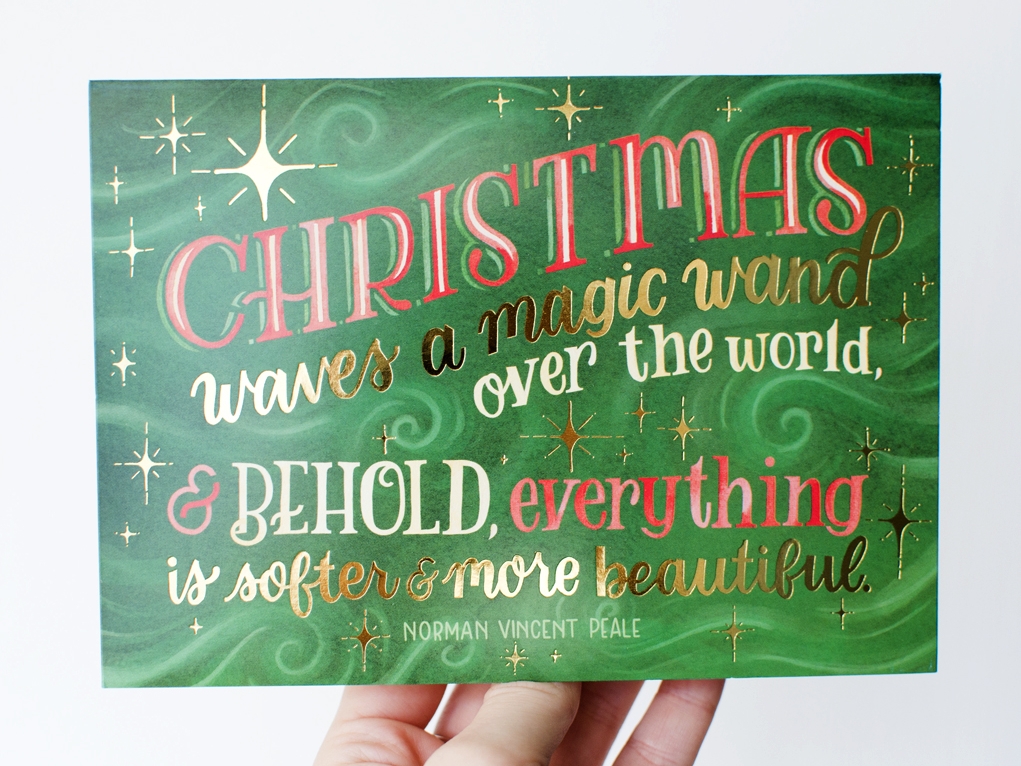 CHRISTMAS
waves a magic wand
over the world,
& BEHOLD, everything
is softer & more beautiful.
NORMAN VINCENT PEALE